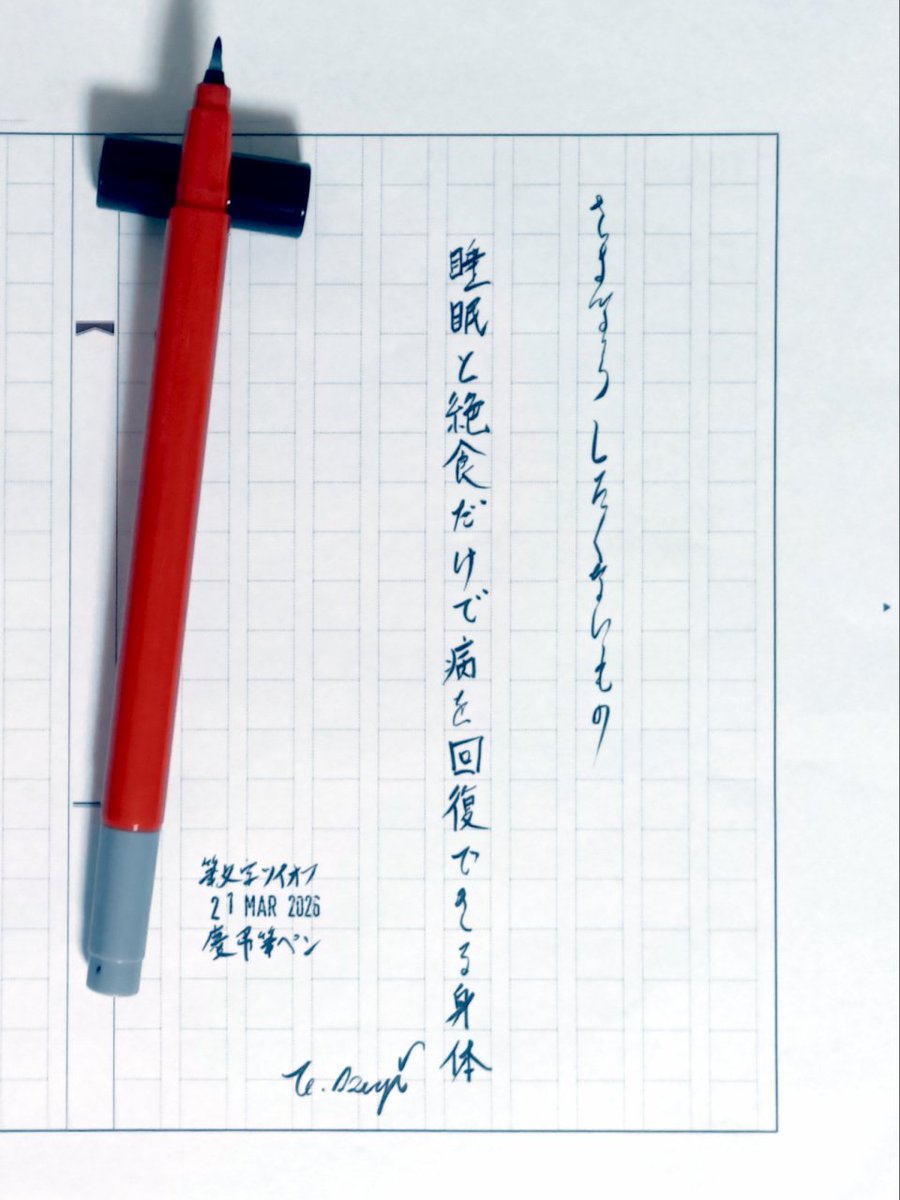 さよなら したくないもの
睡眠と絶食だけで病を回復できる身体
筆文字ツイオフ
21 MAR 2026
慶弔筆ペン